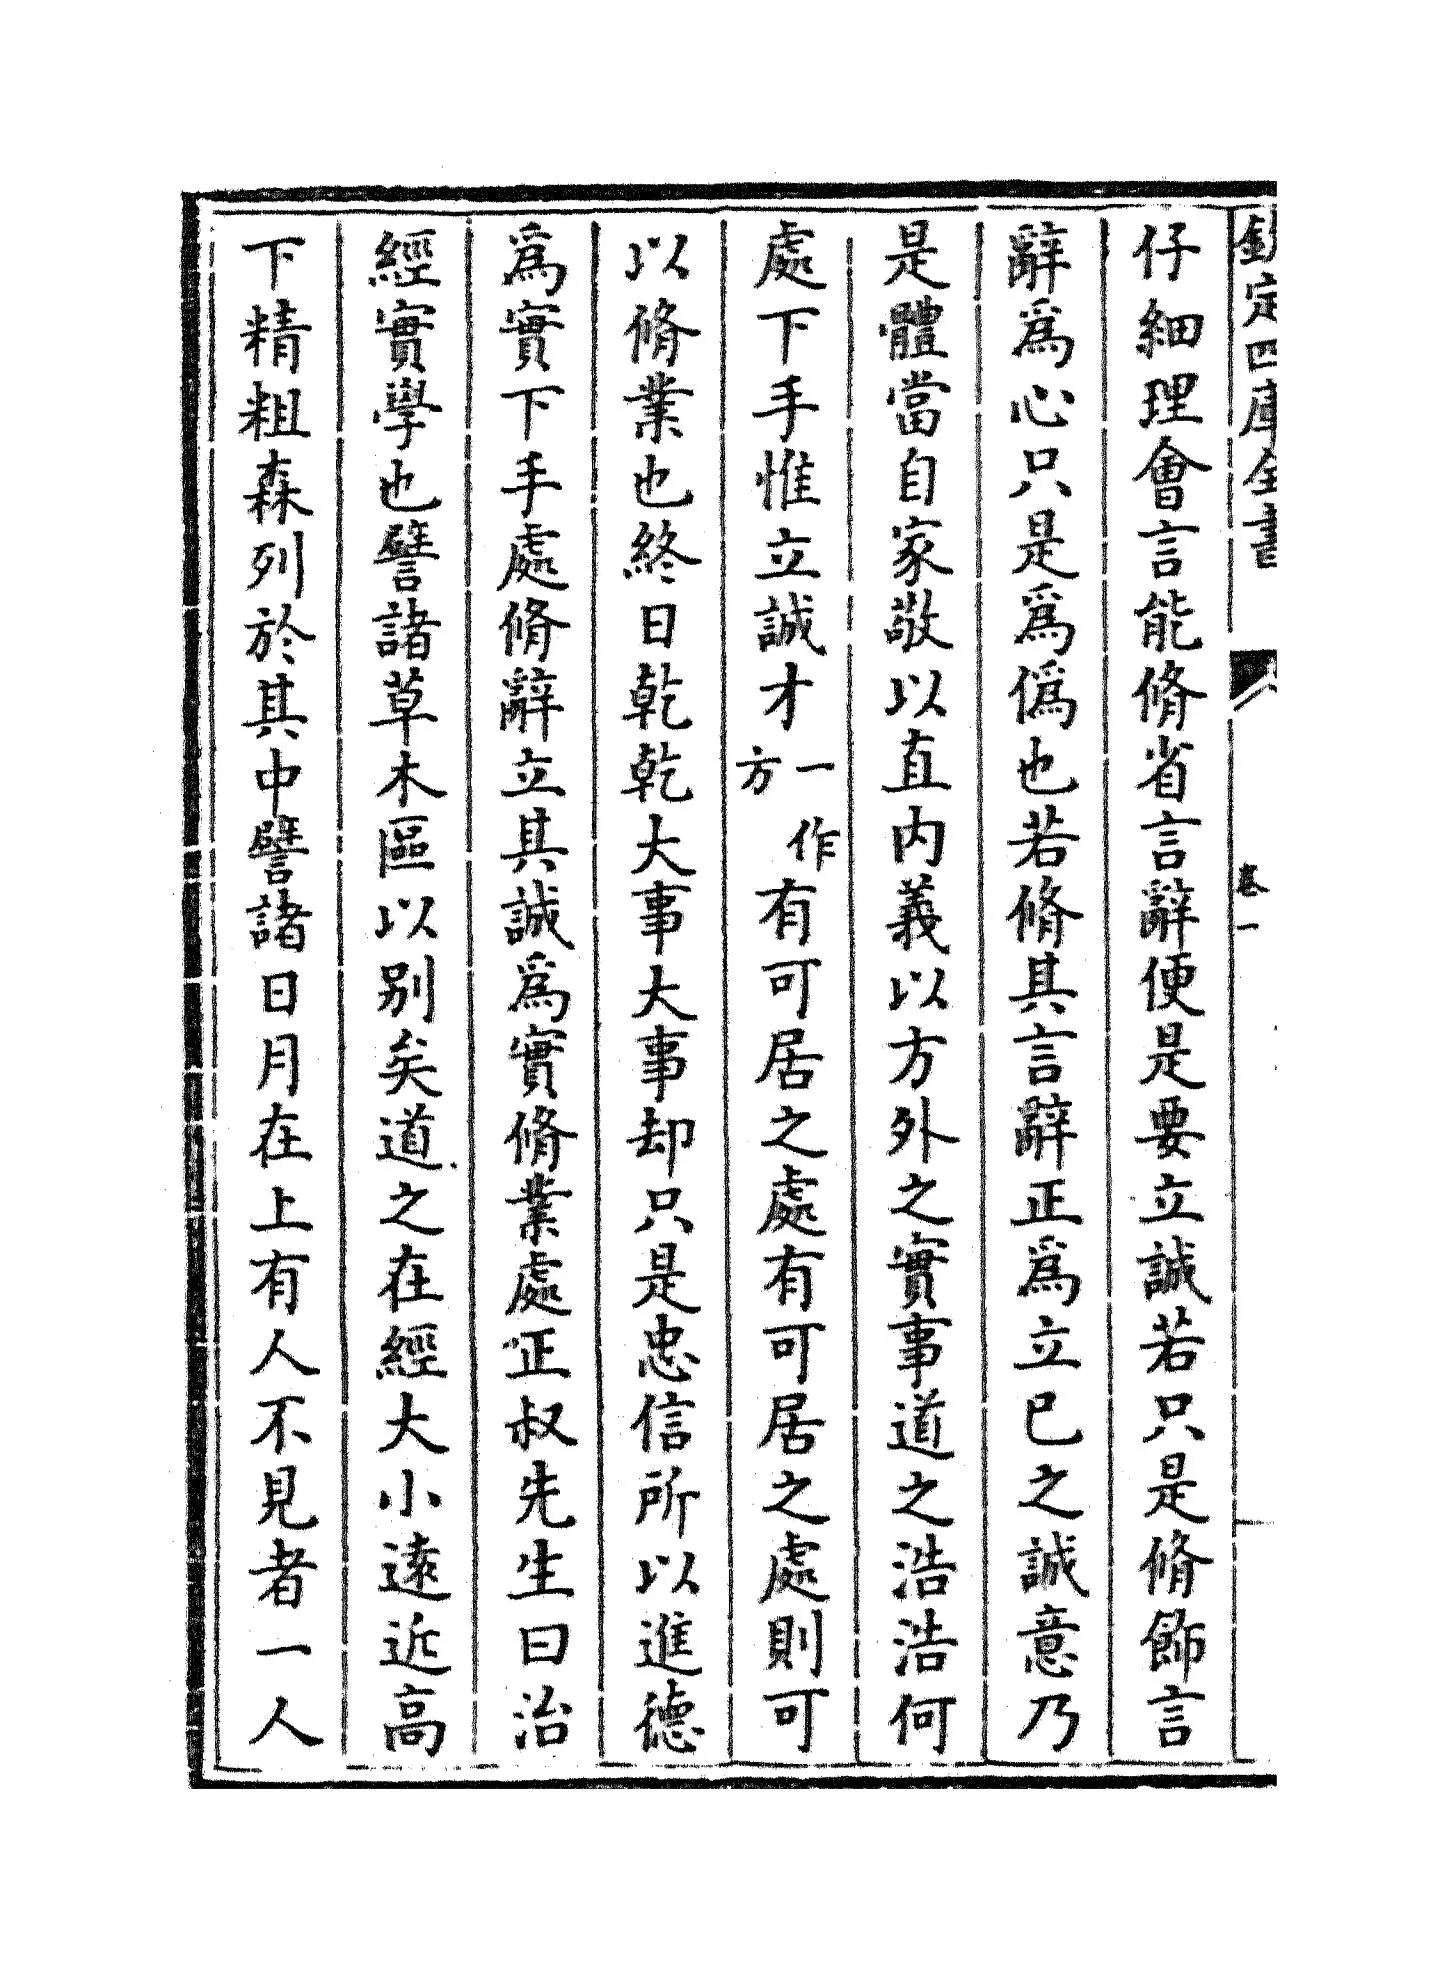 欽定四庫全書
卷一
仔細理會言能脩省言辭便是要立誠若只是脩飾言
辭爲心只是爲僞也若脩其言辭正爲立已之誠意乃
是體當自家敬以直内義以方外之實事道之浩浩何
處下手惟立誠才一作方有可居之處有可居之處則可
以脩業也終日乾乾大事大事却只是忠信所以進德
爲實下手處脩辭立其誠爲實脩業處正叔先生曰治
經實學也譬諸草木區以别矣道之在經大小遠近高
下精粗森列於其中譬諸日月在上有人不見者一人